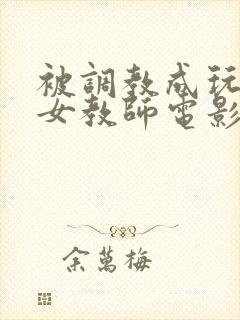 被調教成玩
女教師電影
余萬梅